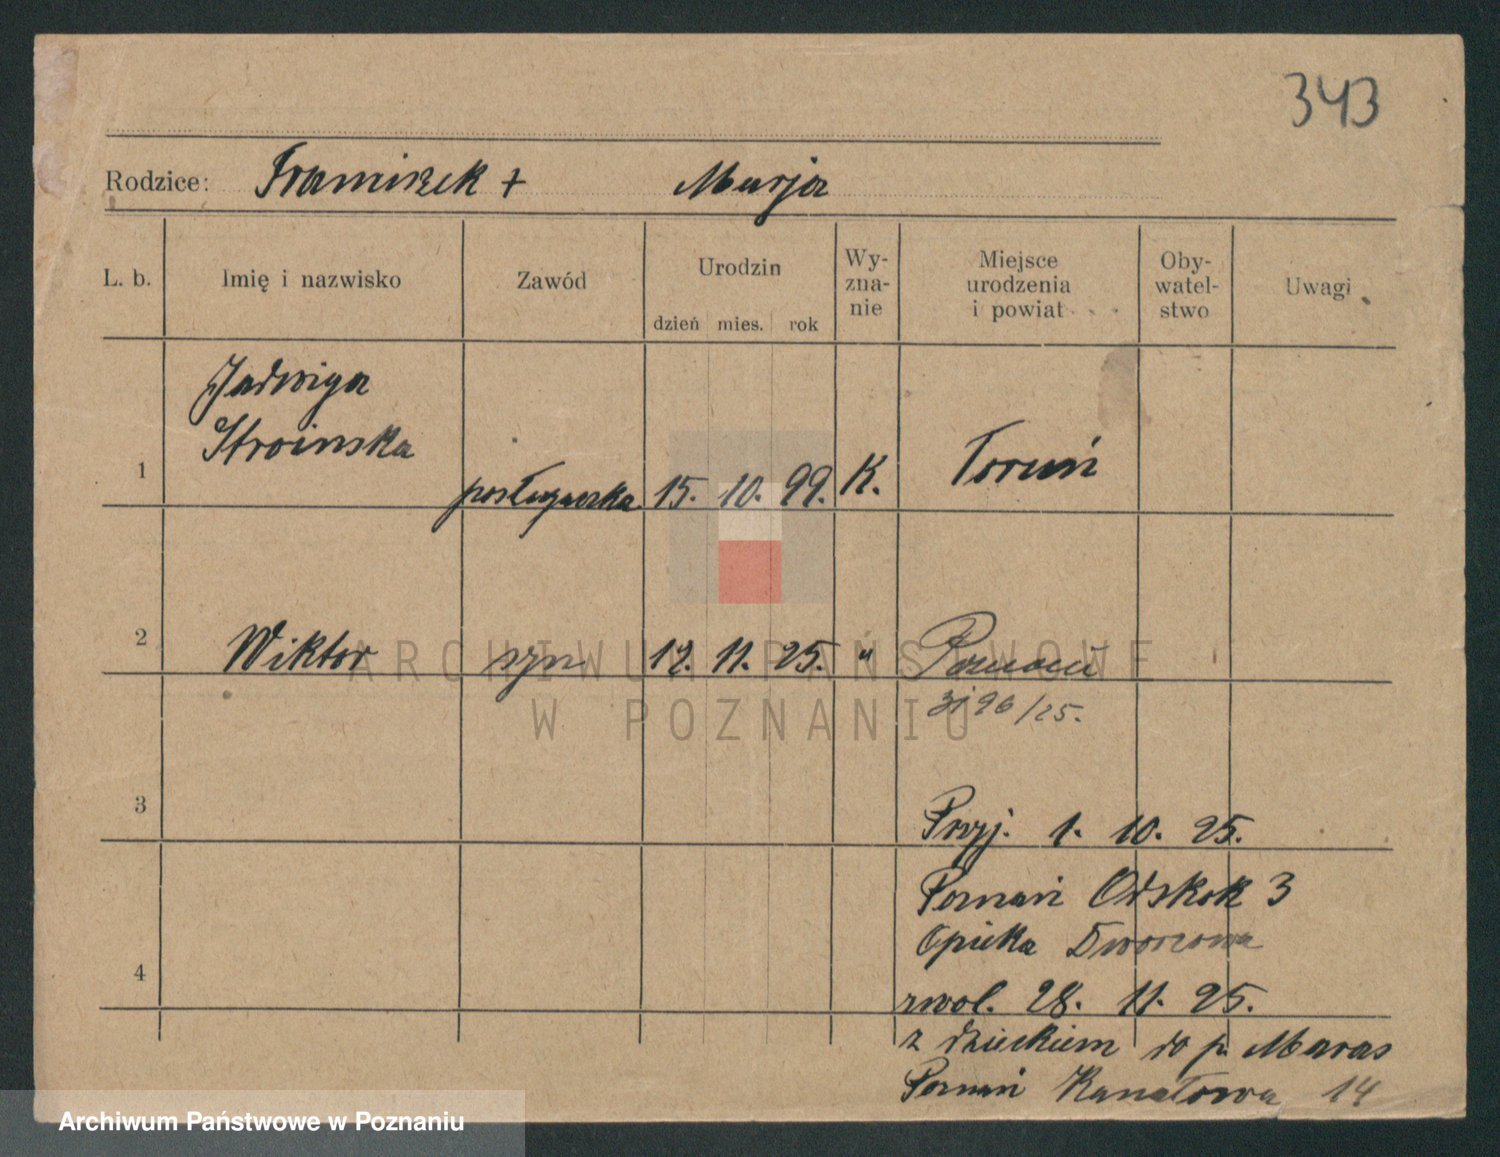 343
Rodzice: Franciszek + Marja
L. b. Imię i nazwisko Zawód Urodzin dzień mies. rok Wy-zna-nie Miejsce urodzenia i powiat Oby-watel-stwo Uwagi
Jadwiga
Stroinska
1 posługaczka 15. 10. 99. K. Toruń
2 Wiktor syn 12. 11. 25. " Poznań
3196/25.
3
Przyj. 1. 10. 25.
Poznań Odskok 3
Opieka Dworcowa
4
zwol. 28. 11. 25.
z dzieckiem do p. Maras
Poznań Kanałowa 14
ARCHIWUM PAŃSTWOWE
W POZNANIU
Archiwum Państwowe w Poznaniu